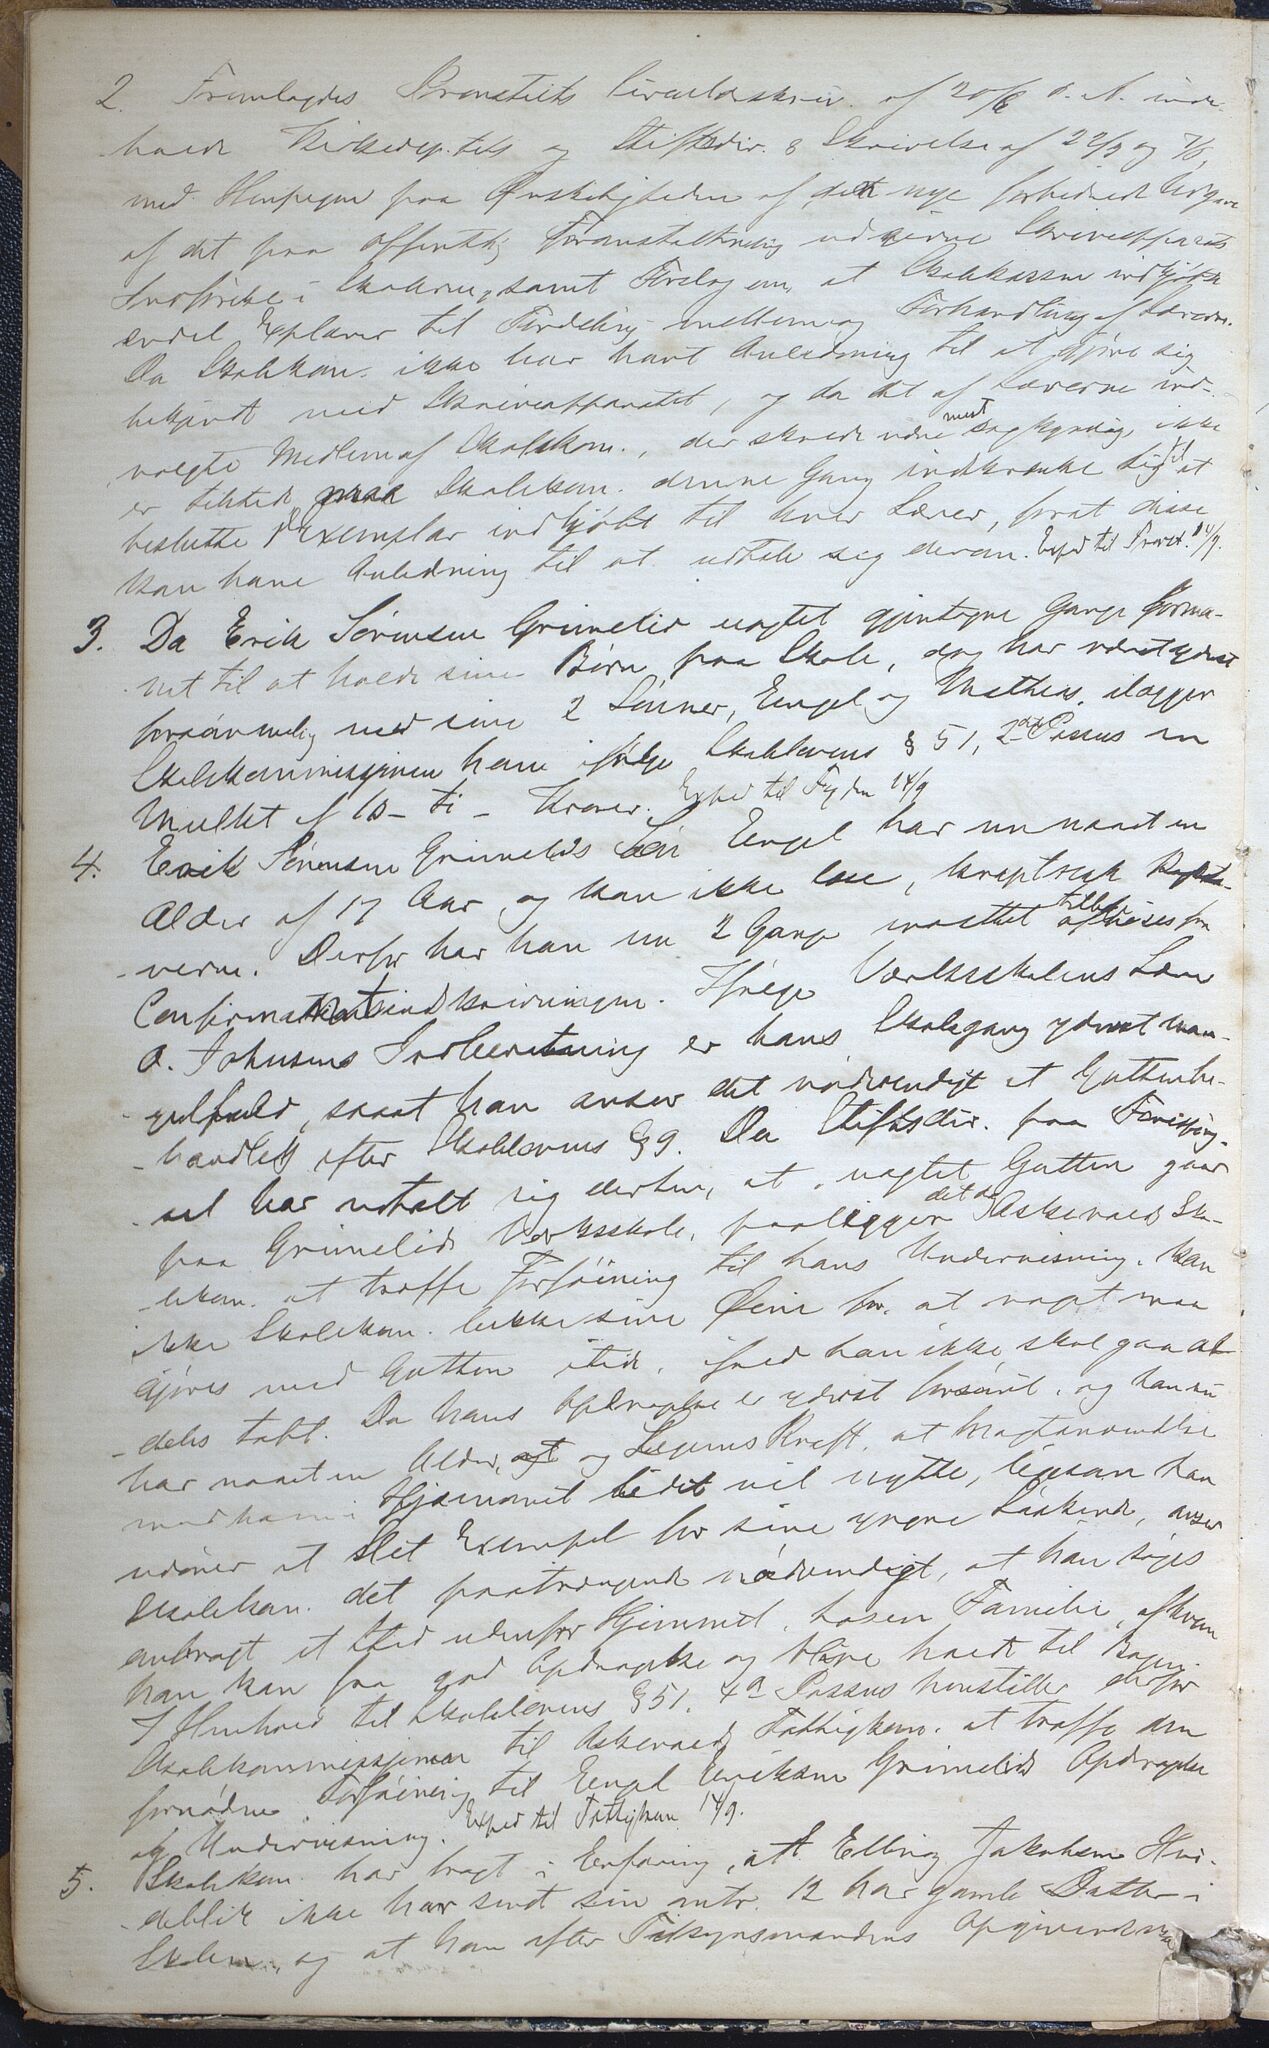 2. Fremlagdes Provstiets Circulærskriv. af 20/6 d. A. inde-
hold. Kirkedep.tets og Stiftsdir.s Skrivelse af 22/3 og 7/5,
med Henpegen paa Ønskeligheden af den nye forbedrede Udgave
af det paa offentlig Foranstaltning udgivne Skriveapparats
Indførelse i Skolerne, samt Forslag om, at Skolekassen indkjøbte
endel Explarer til Fordeling mellem og Forhandling af Lærerne.
Da Skolekom. ikke har havt Anledning til at gjøre sig
bekjendt med Skriveapparatet, og da det af Lærerne ind-
valgte Medlem af Skolekom., der skulde være mest sagkyndig, ikke
er tilstede, maa Skolekom. denne Gang indskrænke sig til at
beslutte 1 Exemplar indkjøbt til hver Lærer, forat disse
kan have Anledning til at udtale sig derom. Exped til Provst. 14/9.
3. Da Erik Sørensen Grimelid uagtet gjentagne Gange forma-
net til at holde sine Børn paa Skole, dog har været yderst
forsømmelig med sine 2 Sønner, Engel og Mathias, ilægger
Skolekommissjonen ham ifølge Skolelovens § 51, 2den Passus en
Mulkt af 10 - ti - Kroner. Exped til Fogden 14/9
4. Erik Sørensen Grimelids Søn Engel har nu naaet en
Alder af 17 Aar og kan ikke læse, knapt nok
-verne. Derfor har han nu 2 Gange maattet tilbagevises fra
Confirmationsindskrivningen. Ifølge Værksskolens Lærer
O. Johnsens Indberetning er hans Skolegang yderst man-
-gelfuld, saaat han anser det nødvendigt at Gutten be-
-handles efter Skolelovens § 9. Da Stiftsdir. paa Forespørg-
sel har udtalt sig derhen, at, uagtet Gutten gaar
paa Grimelids Værksskole, paaligger det dog Askevolds Sko-
-lekom. at træffe Forføining til hans Undervisning, kan
ikke Skolekom. lukke sine Øine for, at noget maa
gjøres med Gutten itide, ifald han ikke skal gaa al-
-deles tabt. Da hans Opdragelse er yderst forsømt, og han nu
har naaet en Alder, og Legems Kraft, at Magtanvendelse
mod ham i Hjemmet lidet vil nytte, ligesom han
udøver et slet Exempel for sine yngre Søskende, anser
Skolekom. det paatrængende nødvendigt, at han søges
anbragt et Sted udenfor Hjemmet, hos en Familie, af hvem
han kan faa god Opdragelse og blive holdt til Bogen.
I Henhold til Skolelovens § 51, 4de Passus henstiller derfor
Skolekommissjonen til Askevolds Fattigkom. at træffe den
fornødne Forføining til Engel Eriksen Grimelids Opdragelse
og Undervisning. Exped til Fattigkom. 14/9.
5. Skolekom. har bragt i Erfaring, at Elling Jakobsen Hvi-
-deblik ikke har sendt sin omtr. 12 Aar gamle Datter i
Skolen, og at han efter Tilsynsmandens Opgivende maa